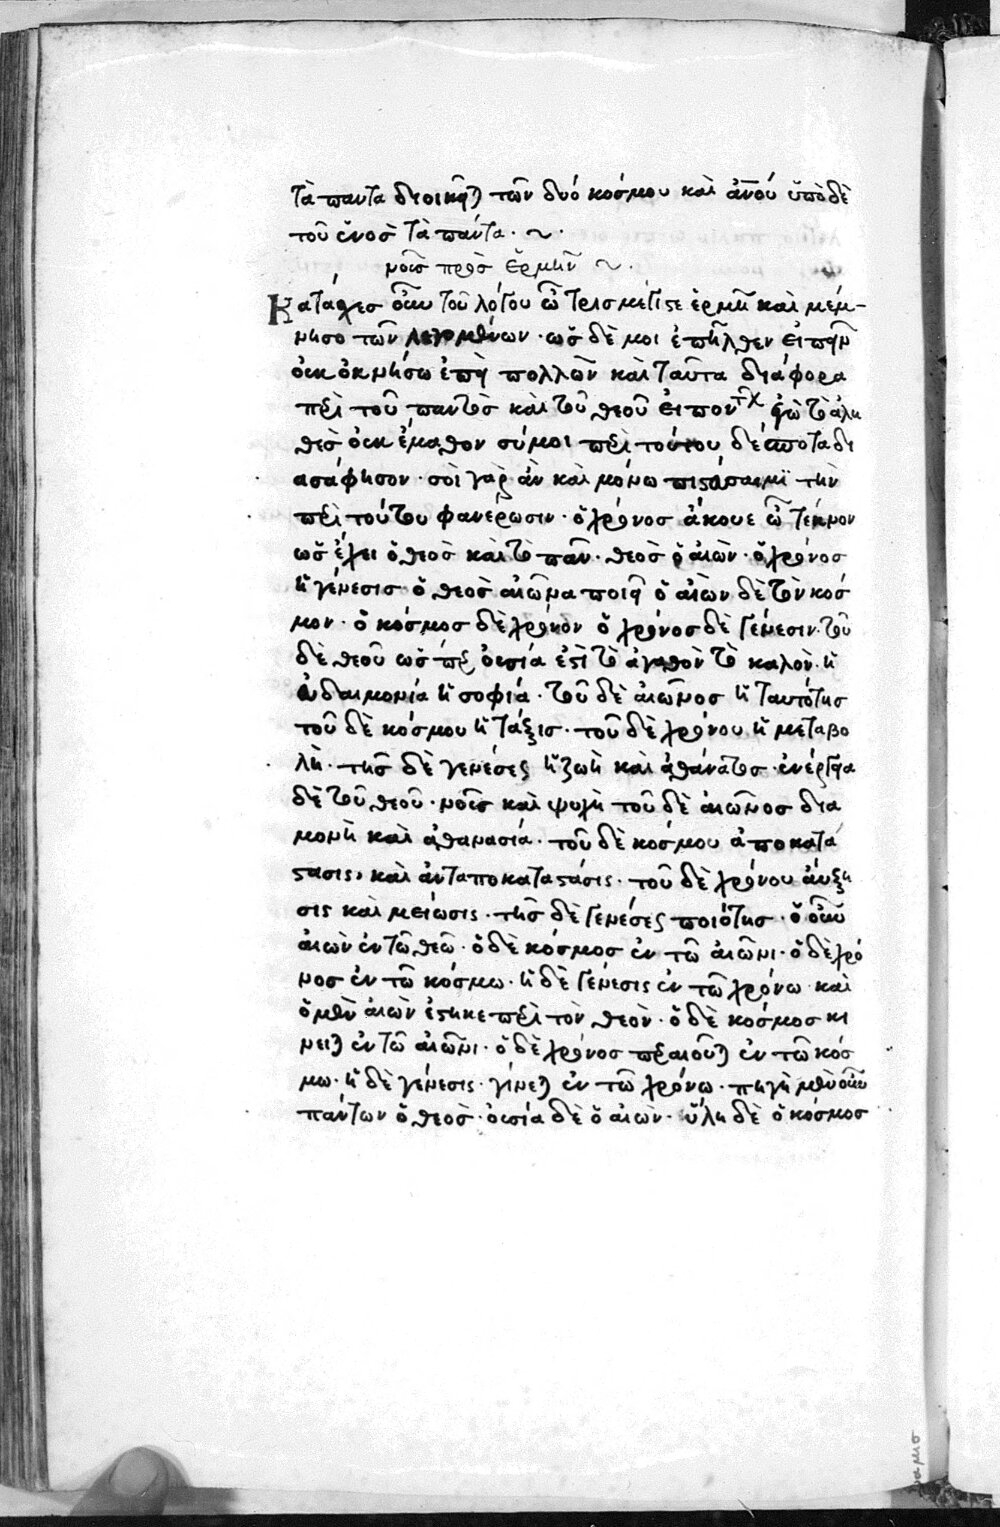 τὰ παντα διοικεῖται τῶν δυό κοσμου καὶ ἀνου ὕπὸδὲ
τοῦ ἕνοσ τὰ πάντα · ~ ·
νοῦς πρὸσ ἑρμῆν ~ ·
Κατάσχεσ οὖν τοῦ λόγου ὦ τρισμέγιστε ἑρμῆ καὶ μέμ-
νησο τῶν λεγομένων · ὡσ δὲ μοι ἐπῆλθεν εἰπεῖν
οὐκ ὀκνήσω ἐπεὶ πολλῶν καὶ ταῦτα διάφορα
περὶ τοῦ παντὸσ καὶ τοῦ θεοῦ εἰπον ἐγὼ τὸ ἀλη
θὲσ οὐκ ἔμαθον σύ μοι περὶ τούτου δέσποτα δι
ασάφησον · σοὶ γαρ ἀν καὶ μόνω πιστεύσαιμϊ τὴν
περὶ τούτου φανέρωσιν · ὁ χρόνοσ ἄκουε ὦ τέκνον
ὡσ ἔχει ὁ θεὸσ καὶ τὸ πᾶν · θεὸσ ὁ αἰὼν · ὁ χρόνοσ
ἡ γένεσισ · ὁ θεὸσ αἰῶνα ποιεῖ ὁ αἰὼν δὲ τὸν κόσ
μον · ὁ κόσμοσ δὲ χρόνον ὁ χρόνοσ δὲ γένεσιν · τοῦ
δὲ θεοῦ ὡσ περ οὐσία ἐστὶ τὸ ἀγαθὸν τὸ καλὸν · ἡ
εὐδαιμονία ἡ σοφιά · τοῦ δὲ αἰῶνοσ ἡ ταυτότησ
τοῦ δὲ κόσμου ἡ τάξισ · τοῦ δὲ χρόνου ἡ μεταβο
λὴ · τῆσ δὲ γενέσεως ἡ ζωὴ καὶ ἀθάνατοσ · ἐνέργεια
δὲ τοῦ θεοῦ · νοῦς καὶ ψυχὴ τοῦ δὲ αἰῶνοσ δια
μονὴ καὶ ἀθανασιά · τοῦ δὲ κόσμου ἀποκατά
στασις, καὶ ἀνταποκαταστάσις · τοῦ δὲ χρόνου ἀύξη
σις καὶ μείωσις · τῆσ δὲ γενέσεως ποιότησ · ὁ οὖν
αἰὼν ἐν τῶ θεῶ · ὁ δὲ κόσμοσ ἐν τῶ αἰῶνι · ὁ δὲ χρό
νοσ ἐν τῶ κόσμω · ἡ δὲ γένεσις ἐν τῶ χρόνω · καὶ
ὁ μὲν αἰὼν ἕστηκε περὶ τὸν θεὸν · ὁ δὲ κόσμοσ κι
νειται ἐν τῶ αἰῶνι · ὁ δὲ χρόνοσ περαιοῦται ἐν τῶ κόσ
μω · ἡ δὲ γένεσις · γίνεται ἐν τῶ χρόνω · πηγὴ μὲν οὖν
πάντων ὁ θεὸσ · οὐσία δὲ ὁ αἰὼν · ὕλη δὲ ὁ κόσμοσ